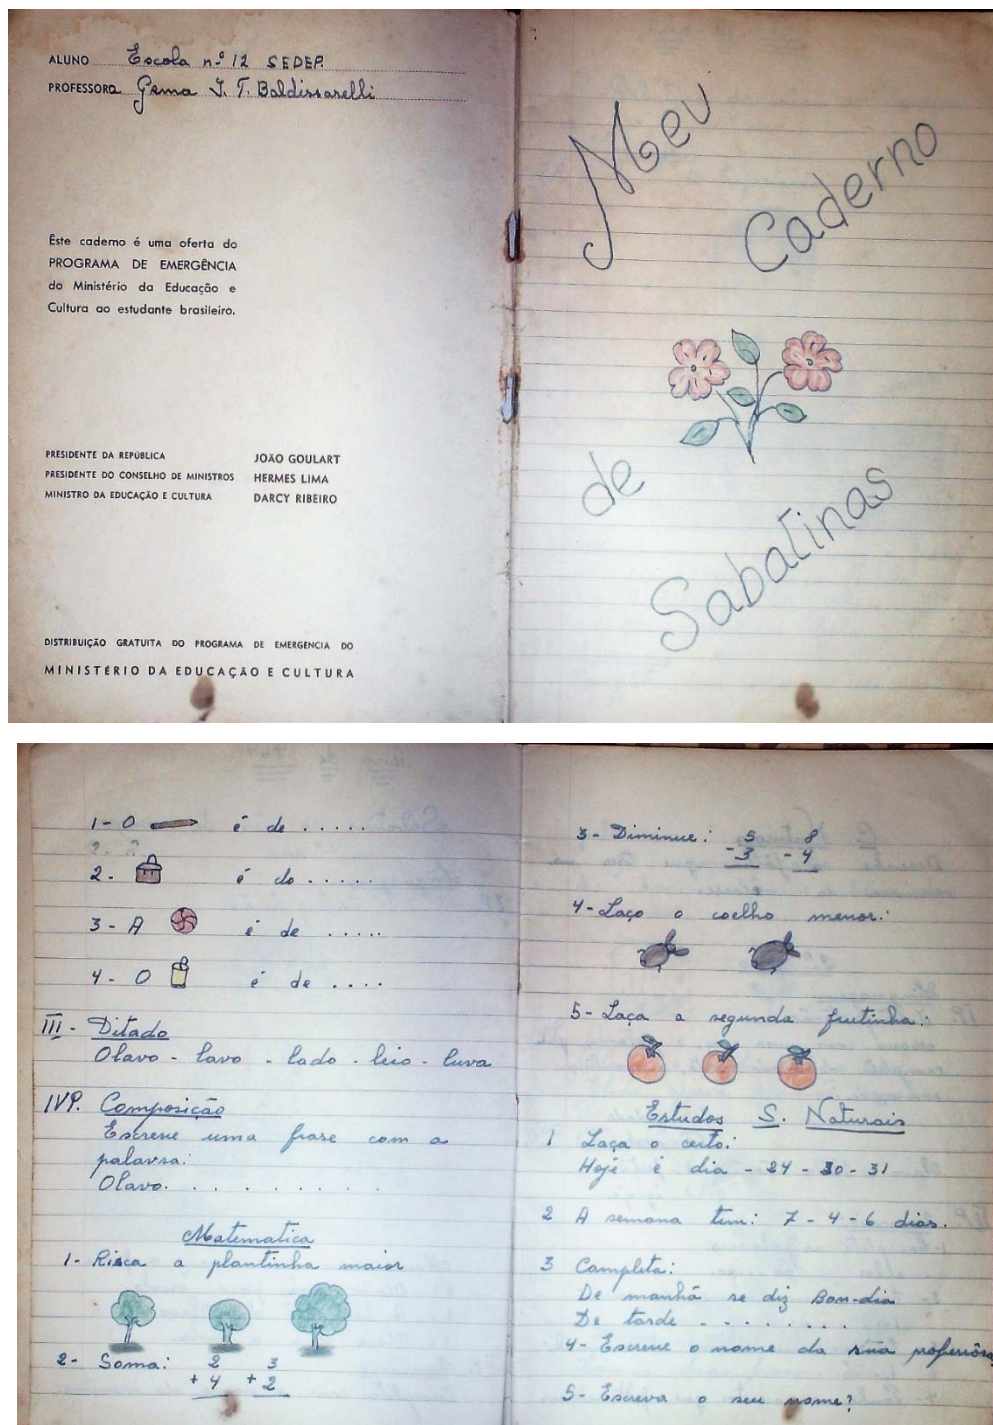 ALUNO Escola nº 12 SEDEP.
PROFESSORA Gema I. T. Baldissarelli
Este caderno é uma oferta do
PROGRAMA DE EMERGÊNCIA
do Ministério da Educação e
Cultura ao estudante brasileiro.
PRESIDENTE DA REPÚBLICA JOÃO GOULART
PRESIDENTE DO CONSELHO DE MINISTROS HERMES LIMA
MINISTRO DA EDUCAÇÃO E CULTURA DARCY RIBEIRO
DISTRIBUIÇÃO GRATUITA DO PROGRAMA DE EMERGENCIA DO
MINISTÉRIO DA EDUCAÇÃO E CULTURA
Meu
Caderno
de
Sabatinas
1- O é de .....
2- é do .....
3- A é de .....
4- O é de ....
III - Ditado
Olavo - lavo - lado - leio - luva
IVP. Composição
Escreve uma frase com a
palavra:
Olavo. . . . . . . . .
Matematica
1- Risca a plantinha maior
2- Soma: 2 3
+ 4 + 2
3- Diminue: 5 8
- 3 - 4
4- Laço o coelho menor:
5- Laça a segunda frutinha:
Estudos S. Naturais
1 Laça o certo:
Hoje é dia - 24 - 30 - 31
2 A semana tem: 7 - 4 - 6 dias.
3 Completa:
De manhã se diz Bom-dia
De tarde - . . . . . . . .
4- Escreve o nome da sua professôra
5- Escreva o seu nome?